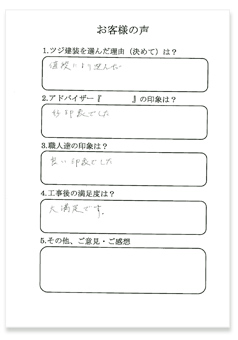 お客様の声
1.ツジ建装を選んだ理由（決めて）は？
値段により選んだ
2.アドバイザー『　　　』の印象は？
好印象でした
3.職人達の印象は？
良い印象でした
4.工事後の満足度は？
大満足です。
5.その他、ご意見・ご感想